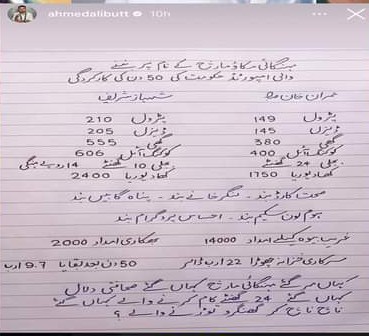 ahmedalibutt 10h
مہنگائی مکاؤ مارچ کے نام پر بننے
والی امپورٹڈ حکومت کی 50 دن کی کارکردگی
عمران خان شہباز شریف
پٹرول 149 پٹرول 210
ڈیزل 145 ڈیزل 205
گھی 380 گھی 555
کوکنگ آئل 400 کوکنگ آئل 606
بجلی 24 گھنٹے بجلی 10 گھنٹے 14 روپے مہنگی
کھاد یوریا 1750 کھاد یوریا 2400
صحت کارڈ بند - لنگر خانے بند - پناہ گاہیں بند
ہوم لون سکیم بند - احساس پروگرام بند
غریب بیوہ کیلئے امداد 14000 بھکاری امداد 2000
سرکاری خزانہ چھوڑا 22 ارب ڈالر 50 دن بعد بقایا 9.7 ارب
کہاں مر گئے مہنگائی مارچ کہاں گئے صحافتی دلال
کہاں گئے 24 گھنٹے کام کرنے والے کہاں گئے
ناچ ناچ کر گھنگرو توڑنے والے ؟